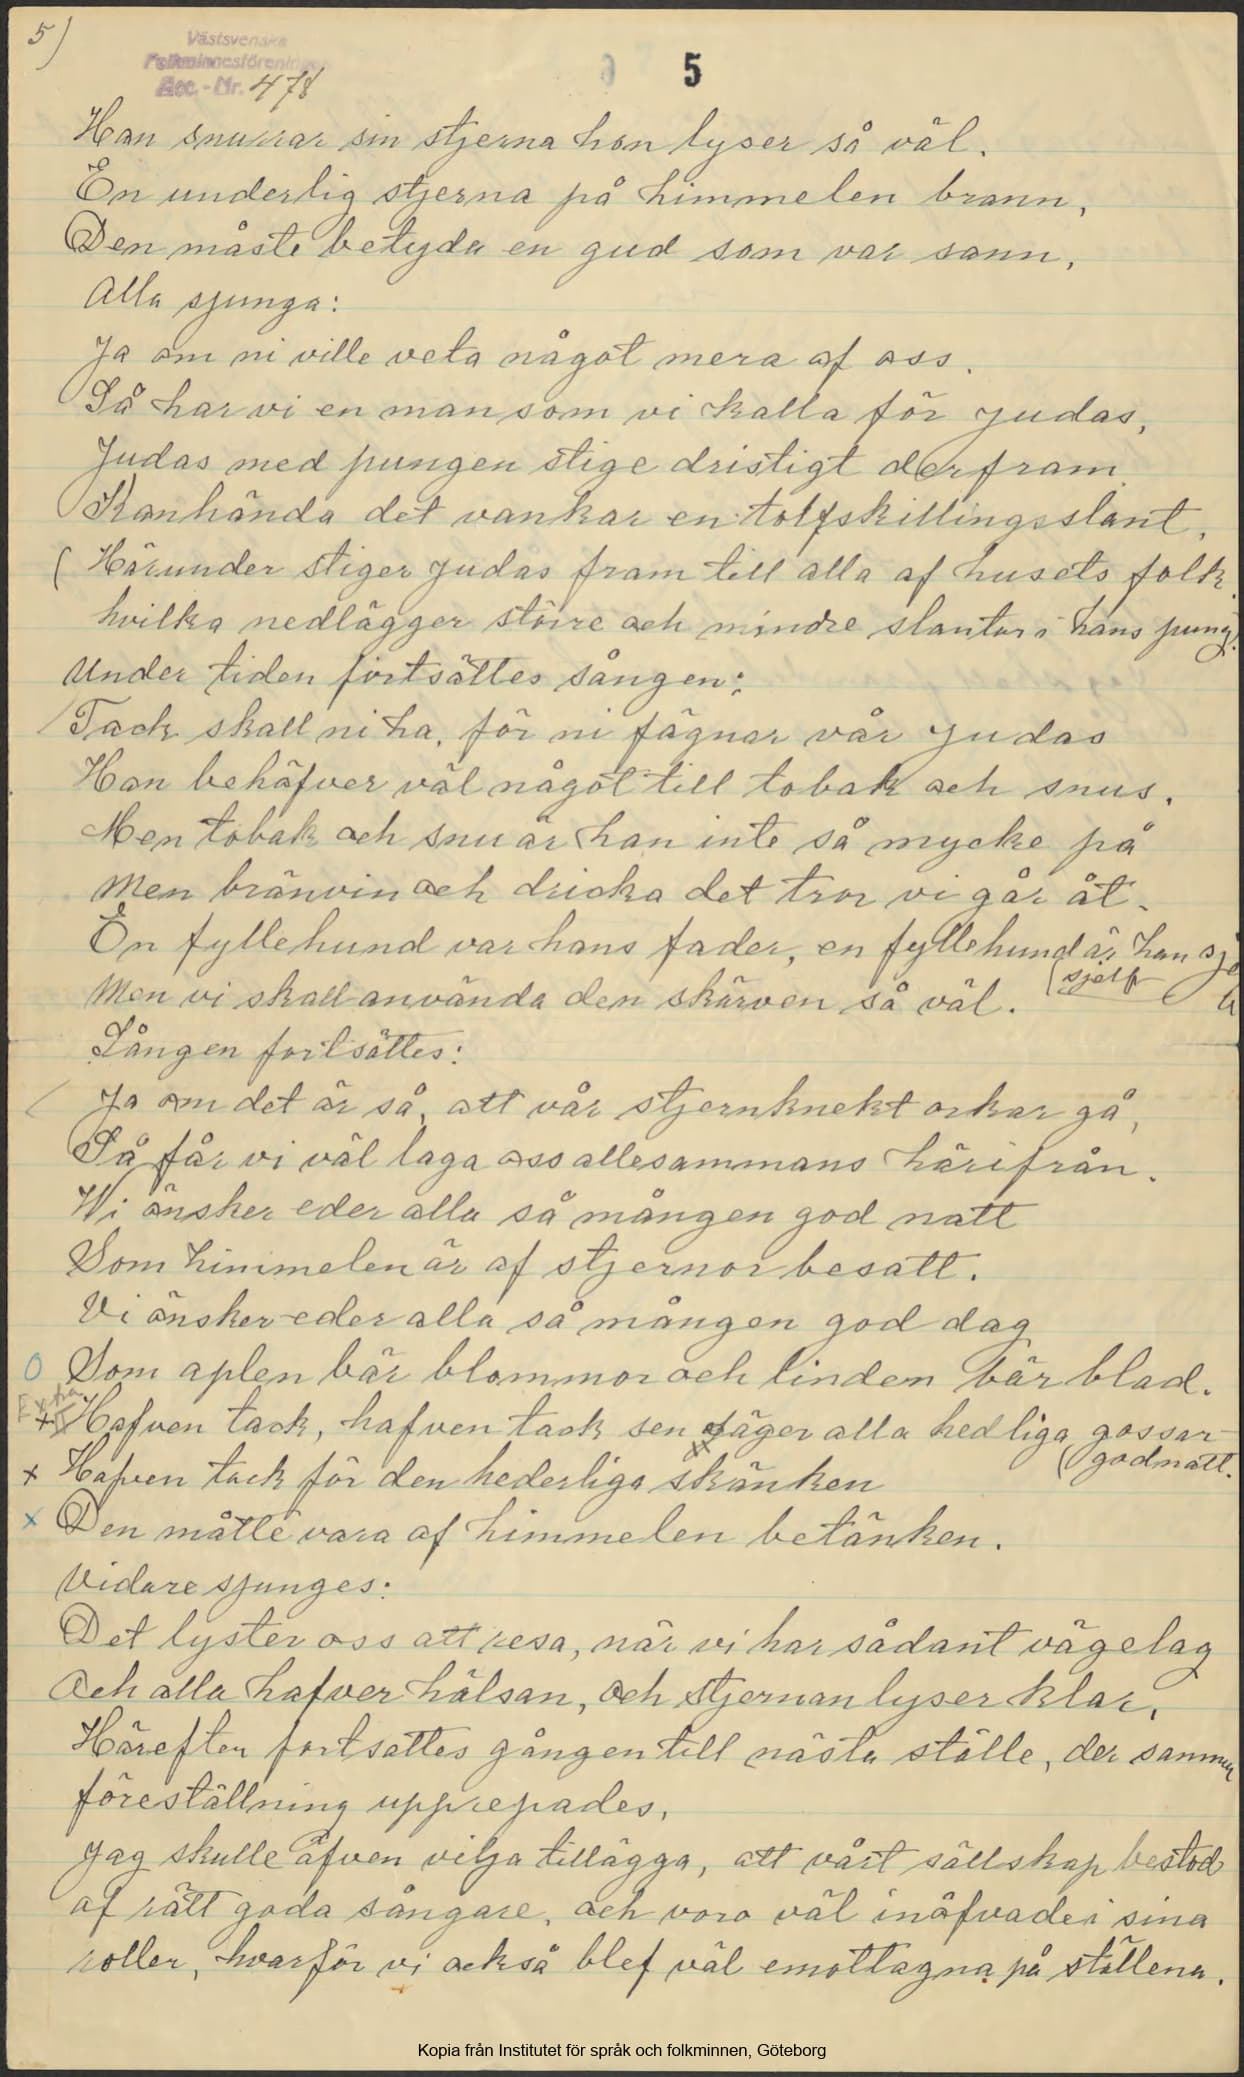 5)
Västsvenska
Folkminnesföreningen
Acc.-Nr. 478
5
Han snurrar sin stjerna han lyser så väl.
En underlig stjerna på himmelen brann,
Den måste betyda en gud som var sann,
Alla sjunga:
Ja om ni ville veta något mera af oss.
Så har vi en man som vi kalla för Judas,
Judas med pungen stige dristigt derfram.
Kanhända det vankar en tolfskillingsslant,
(Härunder stiger Judas fram till alla af husets folk.
hvilka nedlägger större och mindre slantar i hans pung).
Under tiden fortsättes sången:
Tack skall ni ha, för ni fägnar vår Judas
Han behäfver väl något till tobak och snus.
Men tobak och snu är han inte så mycke på
Men bränvin och dricka det tror vi går åt.
En fyllehund var hans fader, en fyllehund är han sje
(sjelf
Men vi skall använda den skärven så väl.
Sången fortsättes:
Ja om det är så, att vår stjernknekt orkar gå,
Så får vi väl laga oss allesammans härifrån.
Wi önsker eder alla så mången god natt
Som himmelen är af stjernor besatt.
Vi önsker eder alla så mången god dag
O Som aplen bär blommor och linden bär blad.
x Hafven tack, hafven tack sen säger alla hedliga gossar
(godnatt.
x Hafven tack för den hederliga skänken
x Den måtte vara af himmelen betänken.
Vidare sjunges:
Det lyster oss att resa, när vi har sådant vägelag
Och alla hafver hälsan, och stjernan lyser klar,
Härefter fortsattes gången till nästa ställe, der samma
föreställning upprepades,
Jag skulle äfven vilja tillägga, att vårt sällskap bestod
af rätt goda sångare, och voro väl inöfvade i sina
roller, hvarför vi också blef väl emottagna på ställena.
Kopia från Institutet för språk och folkminnen, Göteborg